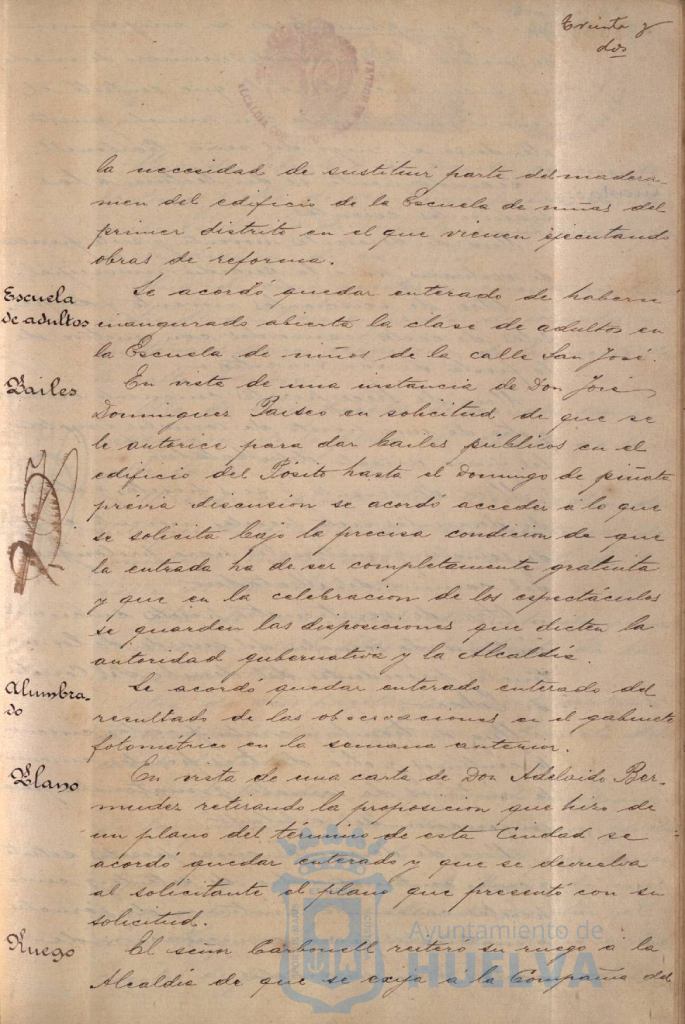 Treinta y
dos
la necesidad de sustituir parte del madera-
men del edificio de la Escuela de niñas del
primer distrito en el que vienen ejecutando
obras de reforma.
Escuela
de adultos
Se acordó quedar enterado de haberse
inaugurado abierta la clase de adultos en
la Escuela de niños de la calle San José.
Bailes
En vista de una instancia de Don José
Dominguez en solicitud de que se
le autorice para dar bailes públicos en el
edificio del Pósito hasta el Domingo de piñata
prévia discusión se acordó acceder á lo que
se solicita bajo la precisa condicion de que
la entrada ha de ser completamente gratuita
y que en la celebracion de los espectáculos
se guarden las disposiciones que dicten la
autoridad gubernativa y la Alcaldía.
Alumbra-
do
Se acordó quedar enterado enterado del
resultado de las observaciones en el gabinete
fotométrico en la semana anterior.
Plano
En vista de una carta de Don Adelaido Ber-
mudez retirando la proposicion que hizo de
un plano del término de esta Ciudad se
acordó quedar enterado y que se devuelva
al solicitante el plano que presentó con su
solicitud.
Ruego
El señor Carbonell reiteró su ruego á la
Alcaldía de que se exija á la Compañia del
Ayuntamiento de
HUELVA